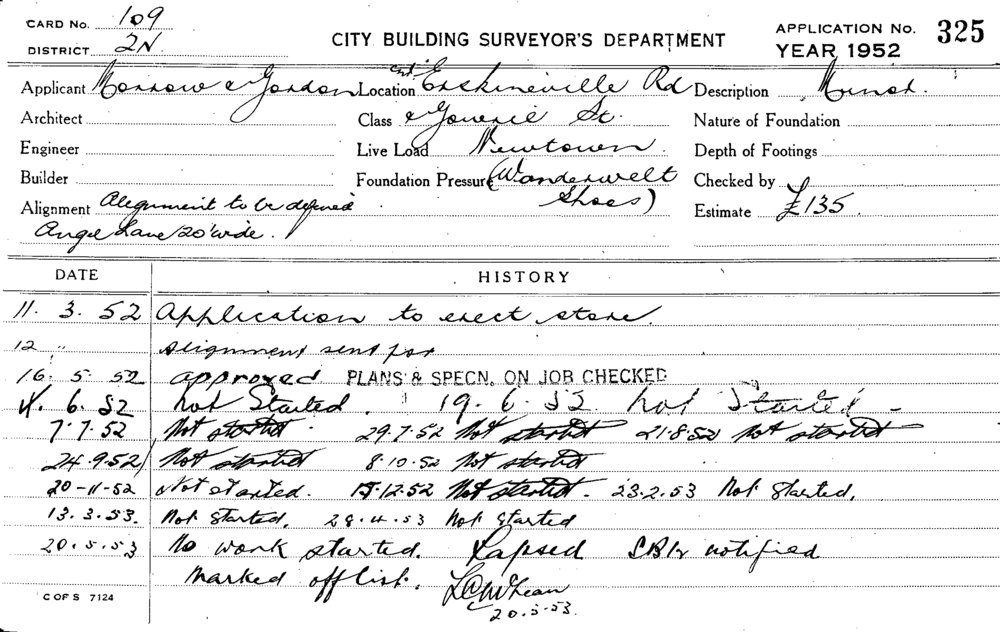 CARD No. 109
DISTRICT 2N
CITY BUILDING SURVEYOR'S DEPARTMENT
APPLICATION No. 325
YEAR 1952
Applicant Morrow & Gordon Location Cnr Erskineville Rd Description Minor.
Architect Class & Gowrie St. Nature of Foundation
Engineer Live Load Newtown. Depth of Footings
Builder Foundation Pressure (Wanderwelt Checked by
Alignment Alignment to be defined Shoes) Estimate £135.
Angel Lane 20' wide.
DATE HISTORY
11. 3. 52 Application to erect store.
12 " Alignment sent for
16. 5. 52 approved PLANS & SPECN. ON JOB CHECKED
4. 6. 52 Not Started. 19. 6. 52 Not Started -
7.7.52 Not started. 29.7.52 Not started 21.8.52 Not started
24.9.52 Not started 8.10.52 Not started
20-11-52 Not started. 15.12.52 Not started. 23.2.53 Not Started.
13.3.53. Not Started. 28.4.53 Not Started
20.5.53 No work started. Lapsed notified
Marked off list.
20.5.53.
C OF S 7124